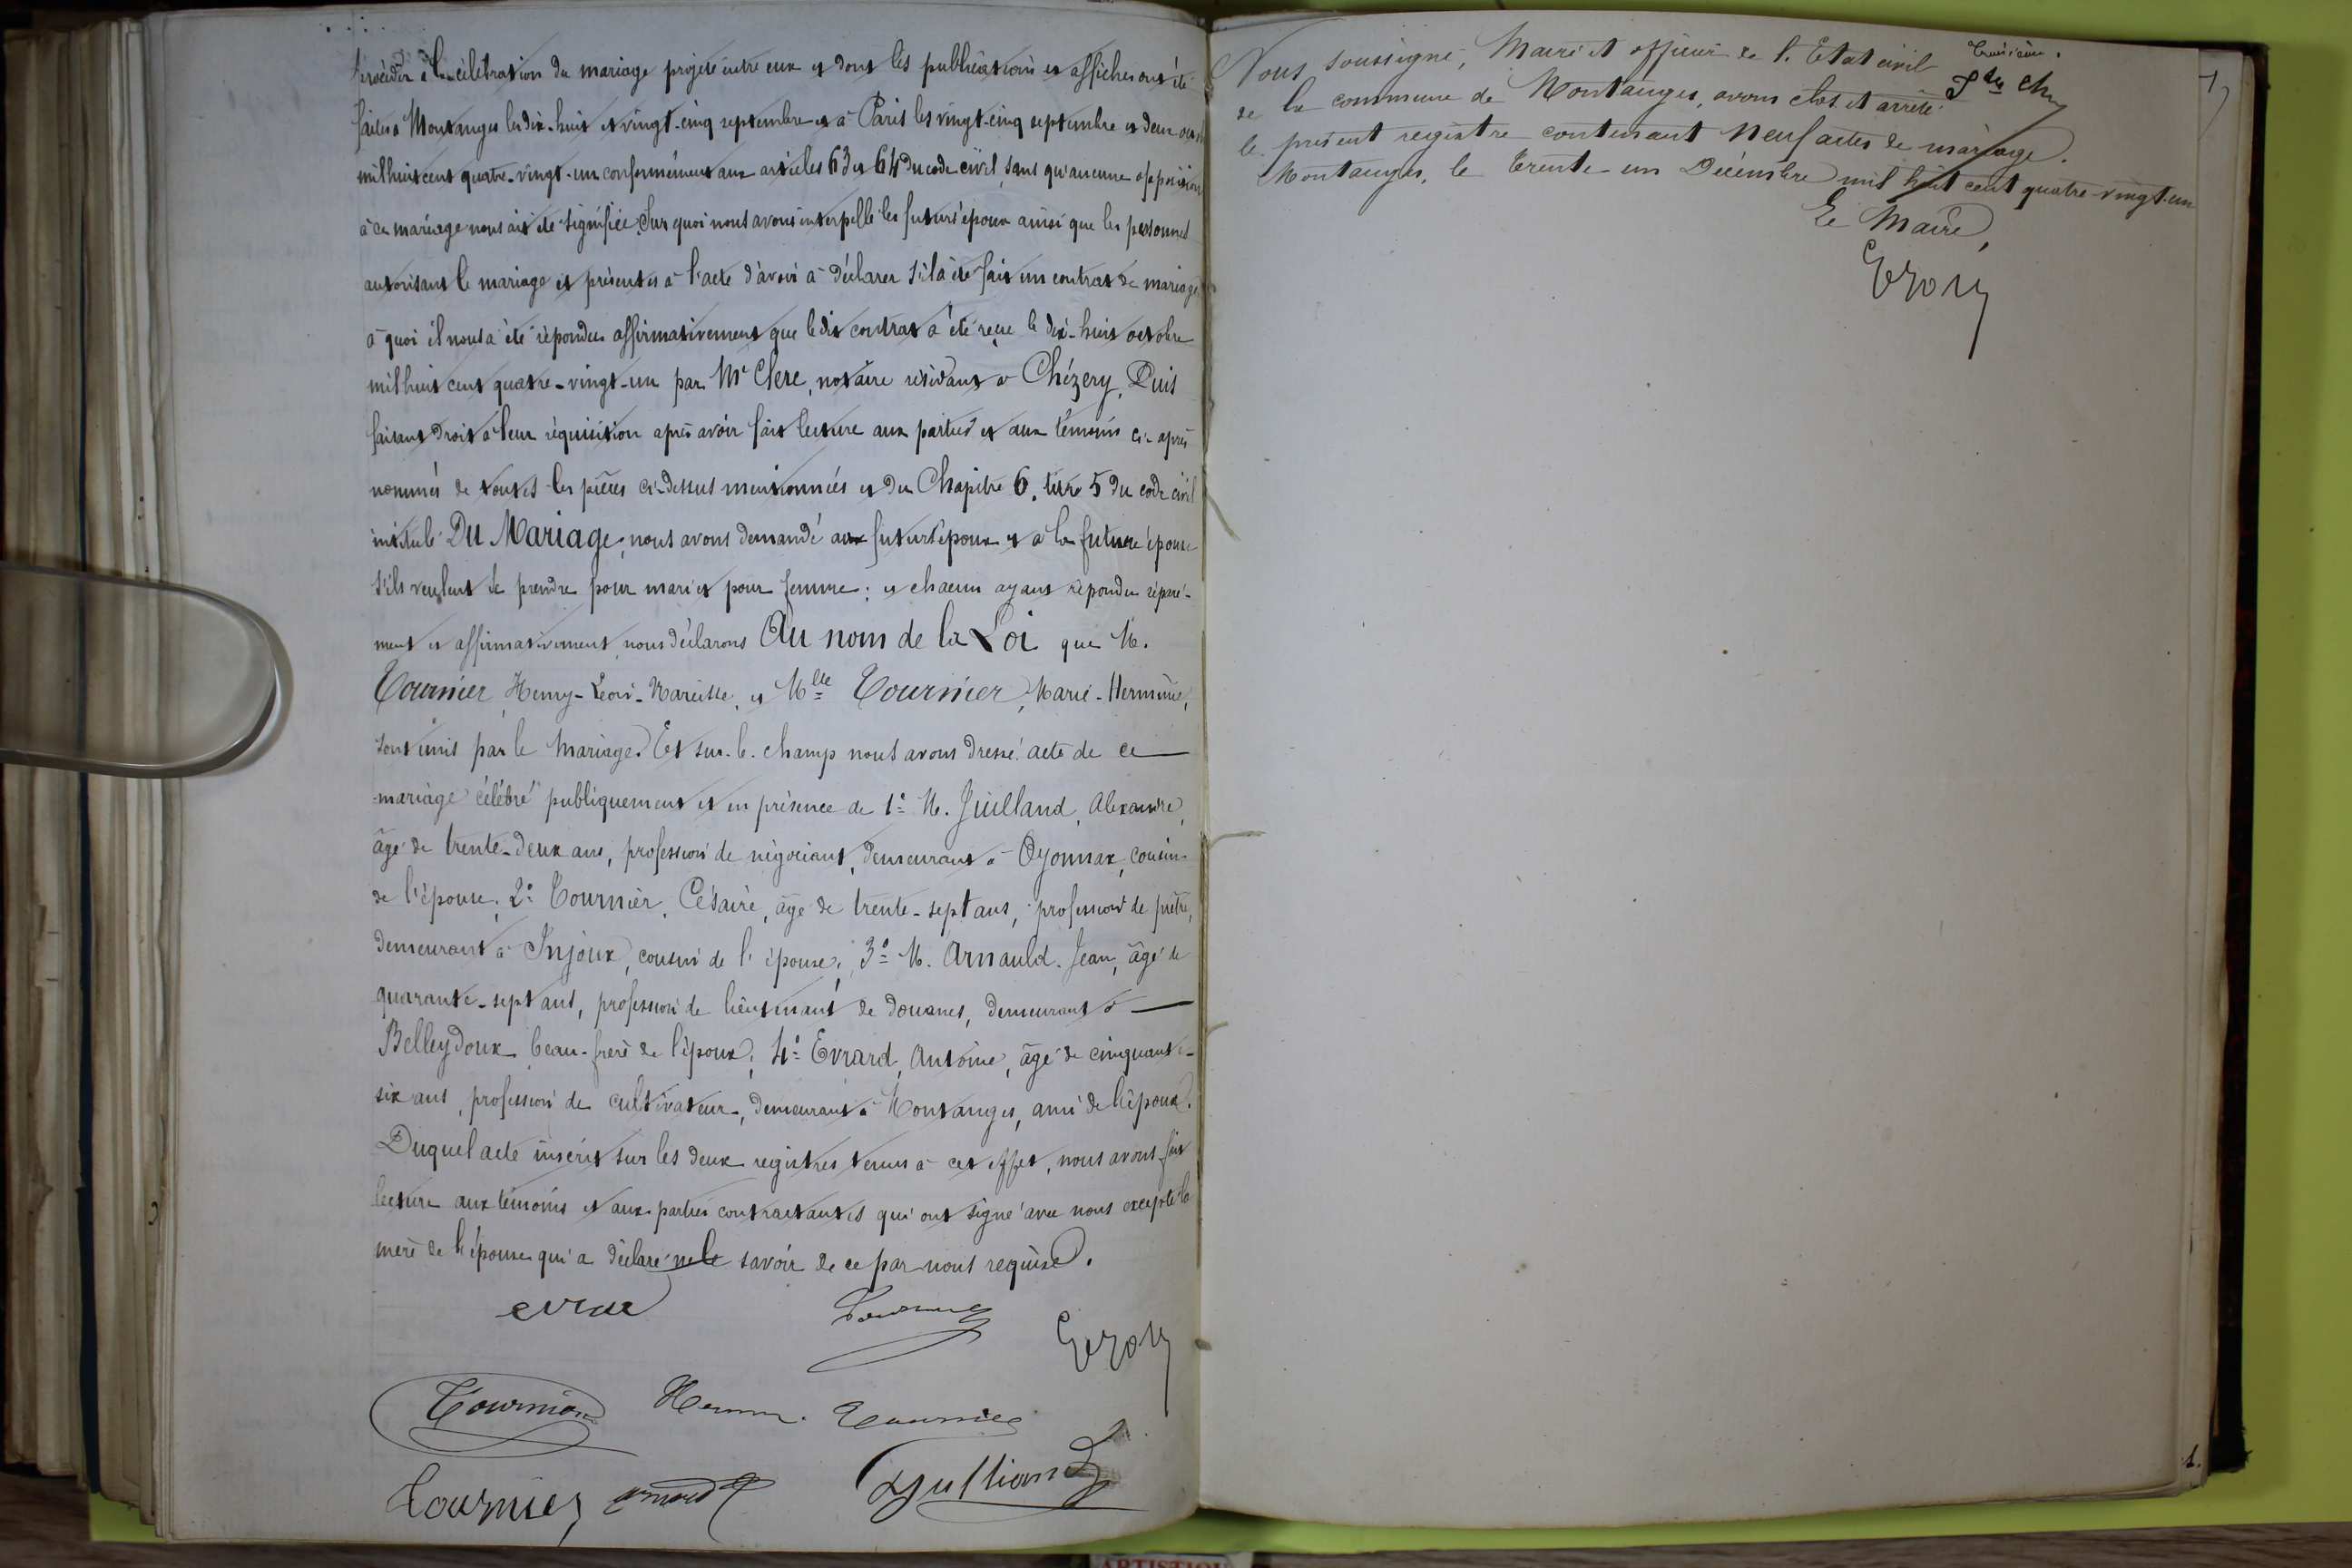 procéder à la célébration du mariage projeté entre eux et dont les publications et affiches ont été
faites à Montanges les dix-huit et vingt-cinq septembre et à Paris les vingt-cinq septembre et deux octobre
mil huit cent quatre-vingt-un conformément aux articles 63 et 64 du code civil, sans qu'aucune opposition
à ce mariage nous ait été signifiée. Sur quoi nous avons interpellé les futurs époux ainsi que les personnes
autorisant le mariage et présentes à l'acte d'avoir à déclarer s'il a été fait un contrat de mariage
à quoi il nous a été répondu affirmativement que le dit contrat a été reçu le dix-huit octobre
mil huit cent quatre-vingt-un par Mr Clerc, notaire résidant à Chézery. Puis
faisant droit à leur réquisition après avoir fait lecture aux parties et aux témoins ci-après
nommés de toutes les pièces ci-dessus mentionnées et du Chapitre 6, titre 5 du code civil
intitulé Du Mariage, nous avons demandé aux futurs époux et à la future épouse
s'ils veulent se prendre pour mari et pour femme; et chacun ayant répondu séparé-
ment et affirmativement, nous déclarons Au nom de la Loi que M.
Tournier, Henry-Léon-Narcisse, et Mlle Tournier, Marie-Hermine,
sont unis par le mariage. Et sur-le-champ nous avons dressé acte de ce
mariage célébré publiquement et en présence de 1º M. Juilland, Alexandre,
âgé de trente-deux ans, profession de négociant, demeurant à Oyonnax, cousin
de l'épouse; 2º Tournier, Césaire, âgé de trente-sept ans, profession de prêtre,
demeurant à Injoux, cousin de l'épouse; 3º M. Arnauld. Jean, âgé de
quarante-sept ans, profession de lieutenant de douanes, demeurant à
Belleydoux, beau-frère de l'époux; 4º Evrard, Antoine, âgé de cinquante-
six ans, profession de cultivateur, demeurant à Montanges, ami de l'époux.
Duquel acte inscrit sur les deux registres tenus à cet effet, nous avons fait
lecture aux témoins et aux parties contractantes qui ont signé avec nous excepté la
mère de l'épouse qui a déclaré ne le savoir de ce par nous requise.
Tournier
Tournier
Tournier
Nous soussigné, Maire et officier de l'Etat civil
de la commune de Montanges, avons clos et arrêté
le présent registre contenant neuf actes de mariage.
Montanges, le trente-un Décembre mil huit cent quatre-vingt-un
Le Maire,